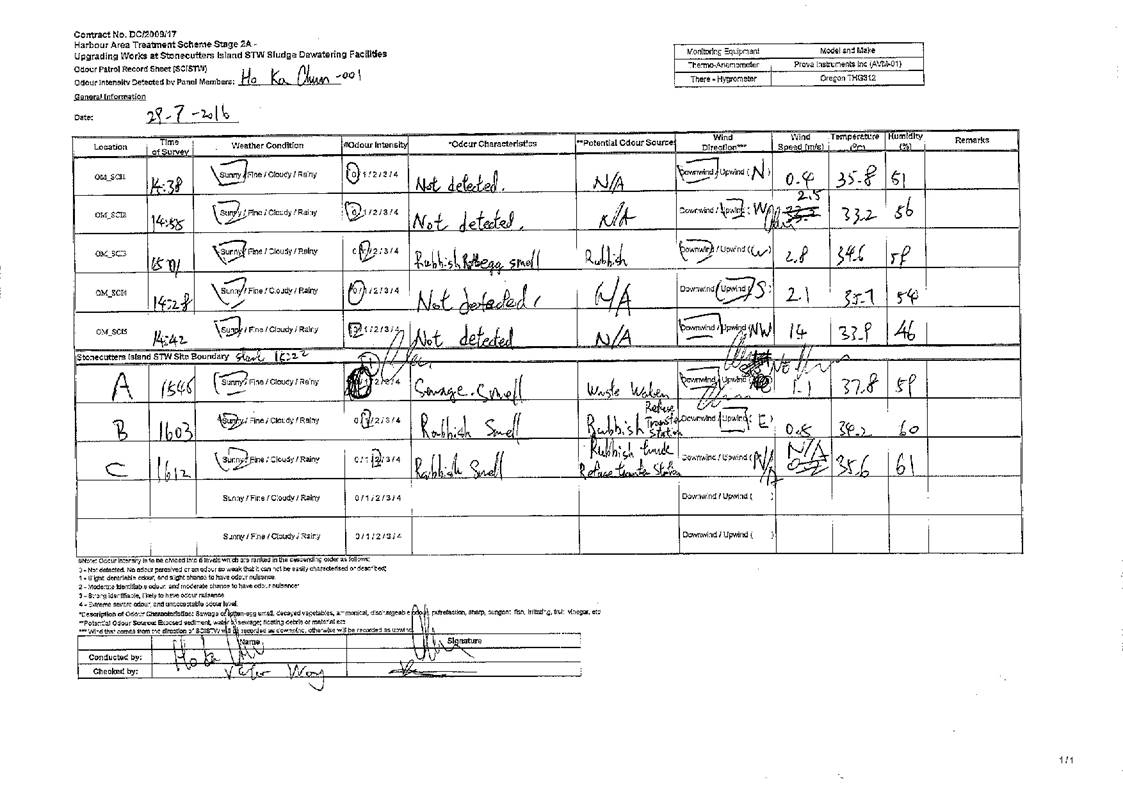 Contract No. DC/2009/17
Harbour Area Treatment Scheme Stage 2A -
Upgrading Works at Stonecutters Island STW Sludge Dewatering Facilities
Odour Patrol Record Sheet (SCISTW)
Odour Intensity Detected by Panel Members: Ho Ka Chun -001
General Information
Date: 29-7-2016
Monitoring Equipment Model and Make
Thermo-Anemometer Prova Instruments Inc (AVM-01)
Thermo - Hygrometer Oregon THG312
Location Time of Survey Weather Condition #Odour Intensity *Odour Characteristics **Potential Odour Source Wind Direction*** Wind Speed (m/s) Temperature (°C) Humidity (%) Remarks
OM_SCI1 14:38 Sunny / Fine / Cloudy / Rainy 0 / 1 / 2 / 3 / 4 Not detected. N/A Downwind / Upwind ( N ) 0.4 35.8 51
OM_SCI2 14:55 Sunny / Fine / Cloudy / Rainy 0 / 1 / 2 / 3 / 4 Not detected. N/A Downwind / Upwind ( W 2.5 33.2 56
OM_SCI3 Sunny / Fine / Cloudy / Rainy 0 / 1 / 2 / 3 / 4 Rubbish egg smell Rubbish Downwind / Upwind ( W ) 2.8 34.6 59
OM_SCI4 14:28 Sunny / Fine / Cloudy / Rainy 0 / 1 / 2 / 3 / 4 Not detected. N/A Downwind / Upwind ( S 2.1 35.7 54
OM_SCI5 14:42 Sunny / Fine / Cloudy / Rainy 0 / 1 / 2 / 3 / 4 Not detected N/A Downwind / Upwind ( NW 33.9 46
Stonecutters Island STW Site Boundary start
A 1546 Sunny / Fine / Cloudy / Rainy 1 / 2 / 3 / 4 Sewage Smell Waste Water Downwind / Upwind NE 1.1 37.8 59
B 1603 Sunny / Fine / Cloudy / Rainy 0 / 1 / 2 / 3 / 4 Rubbish Smell Rubbish Refuse Transfer Station Downwind / Upwind ( E ) 0.5 34.2 60
C 1612 Sunny / Fine / Cloudy / Rainy 0 / 1 / 2 / 3 / 4 Rubbish Smell Rubbish truck Refuse transfer Station Downwind / Upwind ( N/A N/A 35.6 61
Sunny / Fine / Cloudy / Rainy 0 / 1 / 2 / 3 / 4 Downwind / Upwind ( )
Sunny / Fine / Cloudy / Rainy 0 / 1 / 2 / 3 / 4 Downwind / Upwind ( )
#Note: Odour intensity is to be divided into 5 levels which are ranked in the descending order as follows:
0 - Not detected. No odour perceived or an odour so weak that it can not be easily characterised or described;
1 - Slight identifiable odour, and slight chance to have odour nuisance
2 - Moderate identifiable odour, and moderate chance to have odour nuisance
3 - Strong identifiable, likely to have odour nuisance
4 - Extreme severe odour, and unacceptable odour level.
*Description of Odour Characteristics: Sewage of rotten-egg smell, decayed vegetables, ammonical, dischargeable odour, putrefaction, sharp, pungent, fish, irritating, fruit, vinegar, etc
**Potential Odour Source: Exposed sediment, water sewage; floating debris or material etc
*** Wind that comes from the direction of SCISTW will be recorded as downwind, otherwise will be recorded as upwind
Name Signature
Conducted by: Ho Ka
Checked by: Wong
1/1